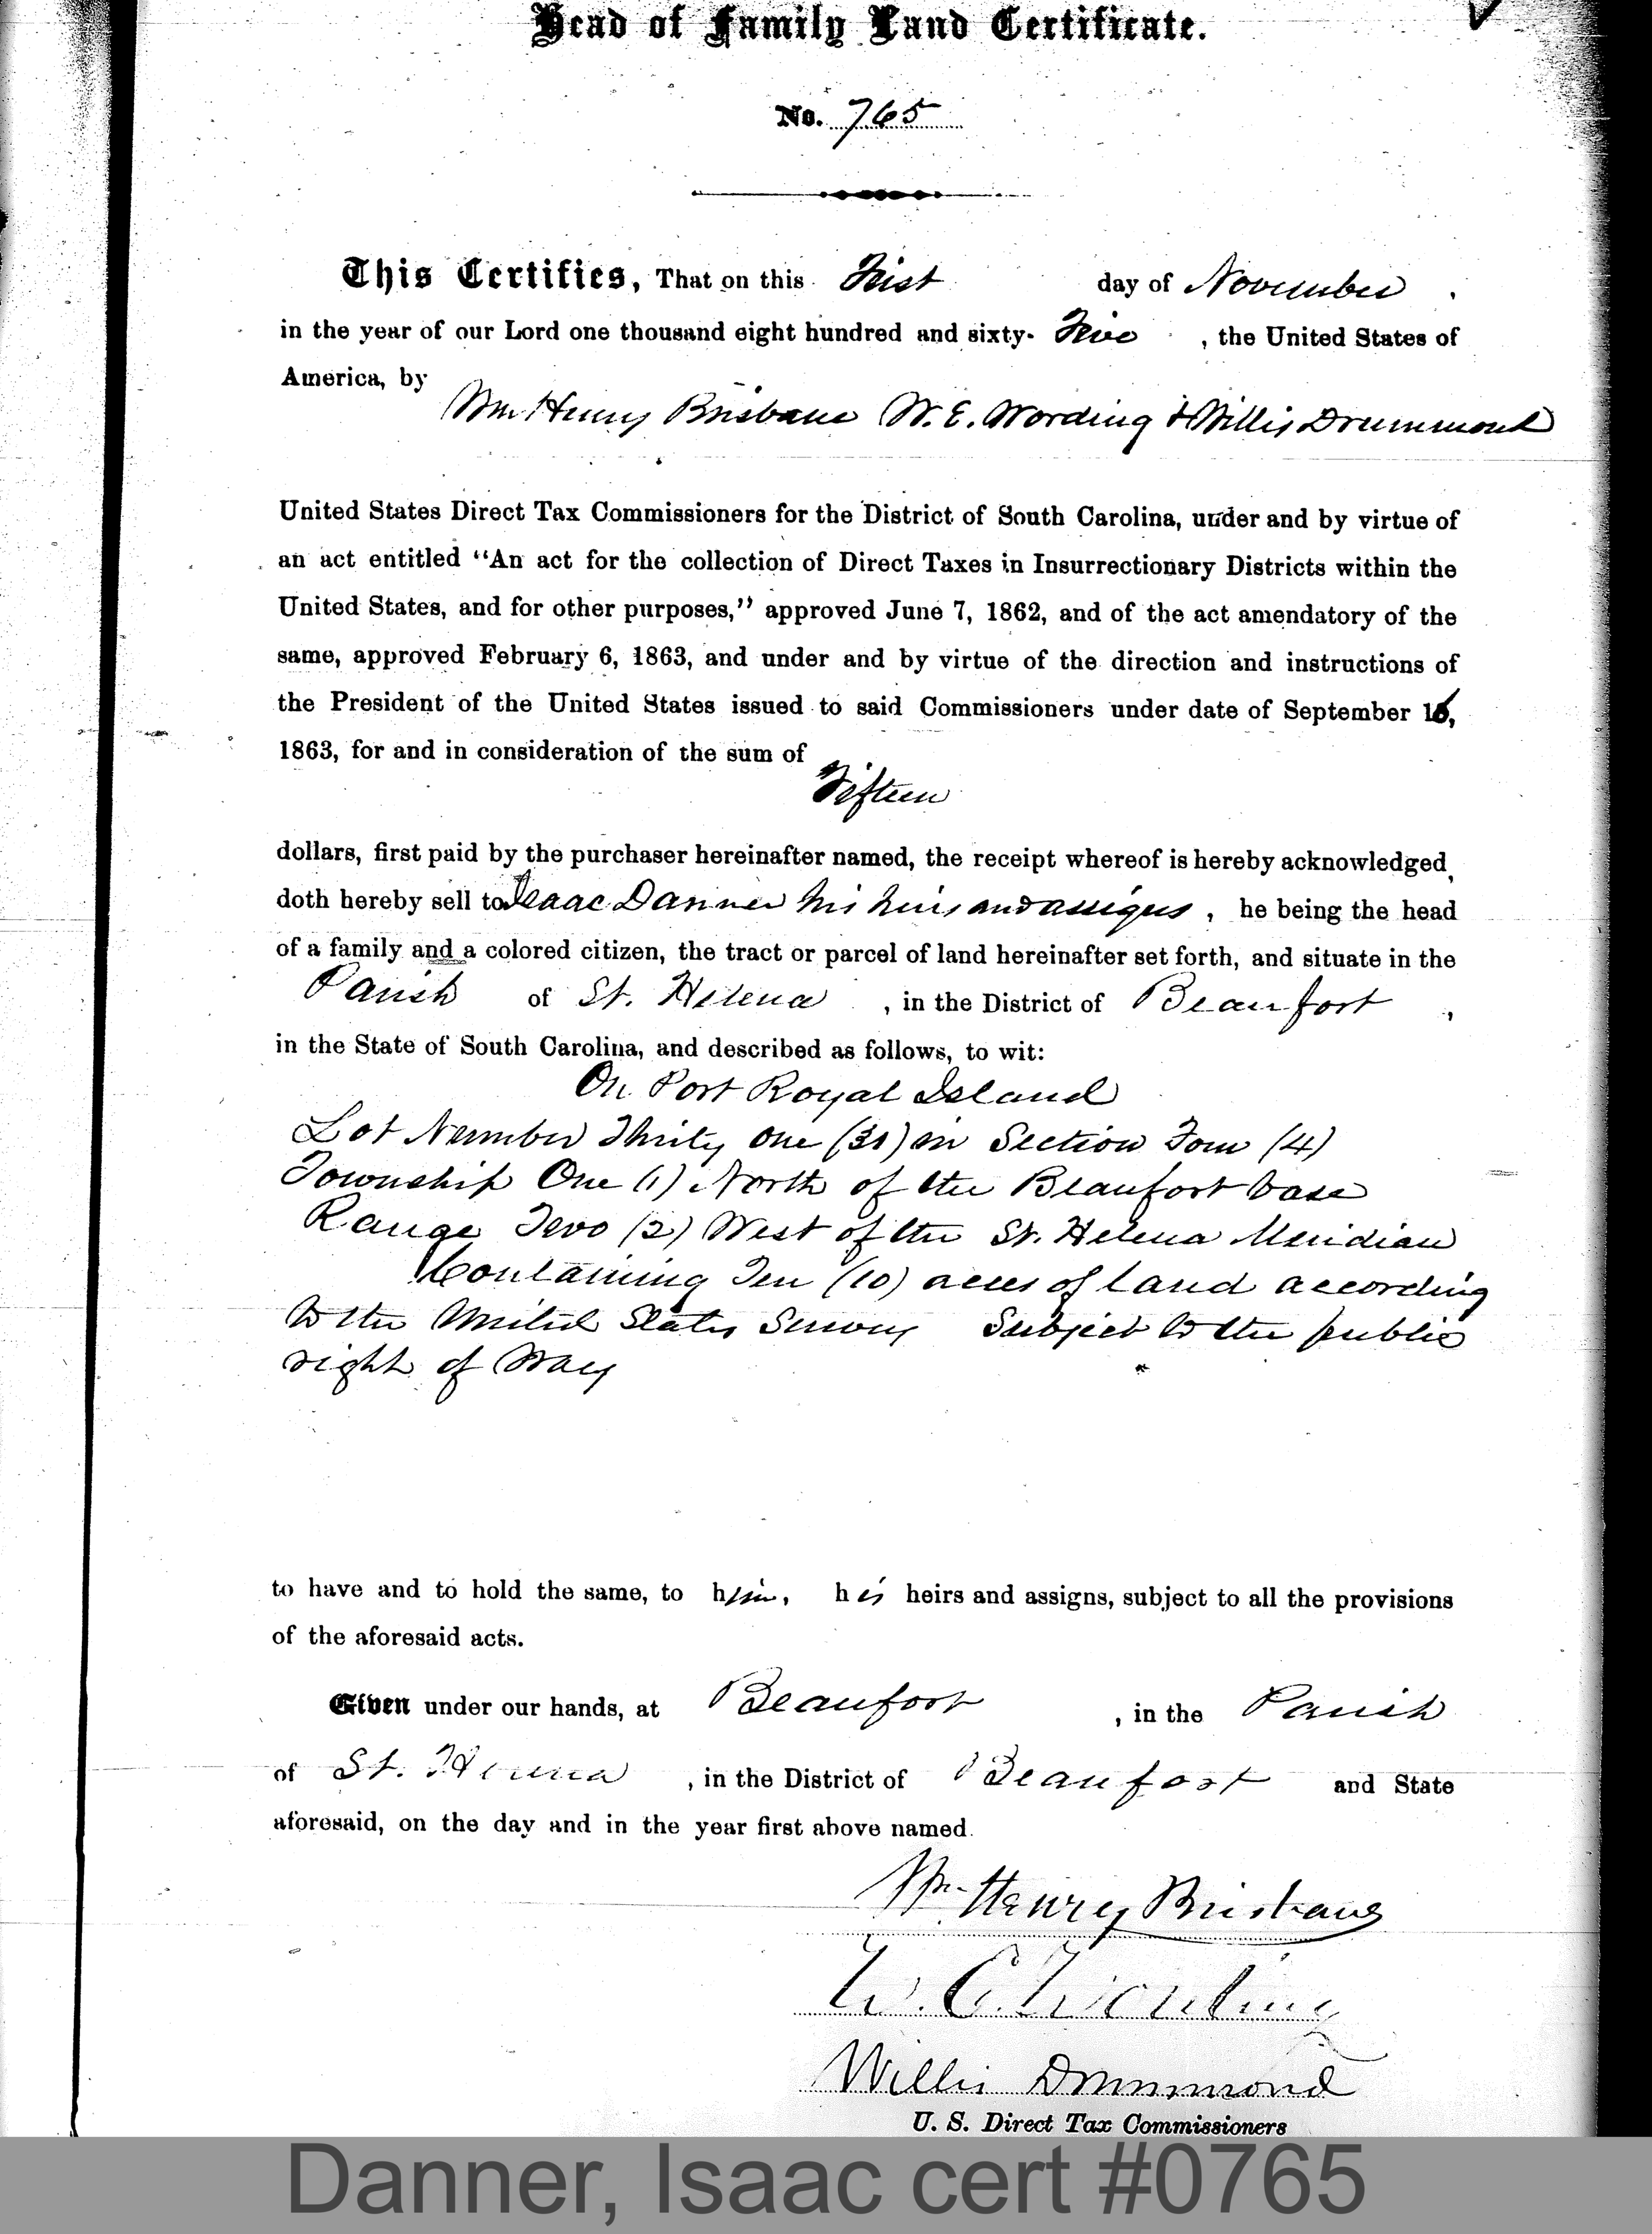 Head of Family Land Certificate.
No. 765
This Certifies, That on this First day of November,
in the year of our Lord one thousand eight hundred and sixty-Five, the United States of
America, by
Wm Henry Brisbane W. E. Wording & Willis Drummond
United States Direct Tax Commissioners for the District of South Carolina, under and by virtue of
an act entitled "An act for the collection of Direct Taxes in Insurrectionary Districts within the
United States, and for other purposes," approved June 7, 1862, and of the act amendatory of the
same, approved February 6, 1863, and under and by virtue of the direction and instructions of
the President of the United States issued to said Commissioners under date of September 16,
1863, for and in consideration of the sum of
Fifteen
dollars, first paid by the purchaser hereinafter named, the receipt whereof is hereby acknowledged,
doth hereby sell to Isaac Danner his heirs and assigns, he being the head
of a family and a colored citizen, the tract or parcel of land hereinafter set forth, and situate in the
Parish of St. Helena, in the District of Beaufort,
in the State of South Carolina, and described as follows, to wit:
On Port Royal Island
Lot Number Thirty One (31) in Section Four (4)
Township One (1) North of the Beaufort base
Range Two (2) West of the St. Helena Meridian
Containing Ten (10) acres of land according
to the United States Survey Subject to the public
right of Way
to have and to hold the same, to him, his heirs and assigns, subject to all the provisions
of the aforesaid acts.
Given under our hands, at Beaufort, in the Parish
of St. Helena, in the District of Beaufort and State
aforesaid, on the day and in the year first above named.
Wm. Henry Brisbane
W. E. Wording
Willis Drummond
U. S. Direct Tax Commissioners
Danner, Isaac cert #0765